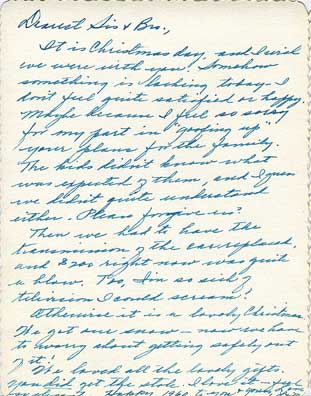 Dearest Sis & Bro.,
It is Christmas day, and I wish
we were with you. Somehow
something is lacking today - I
don't feel quite satisfied or happy.
Maybe because I feel so sorry
for my part in "goofing up"
your plans for the family.
The kids didn't know what
was expected of them, and I guess
we didn't quite understand
either. Please forgive us?
Then we had to have the
transmission of the car replaced,
and $200 right now was quite
a blow. Too, I'm so sick of
television I could scream!
Otherwise it is a lovely Christmas.
We got our snow - now we have
to worry about getting safely out
of it!
We loved all the lovely gifts.
You did get the stole. I love it - feel
Happy 1960 to you & yours, Love